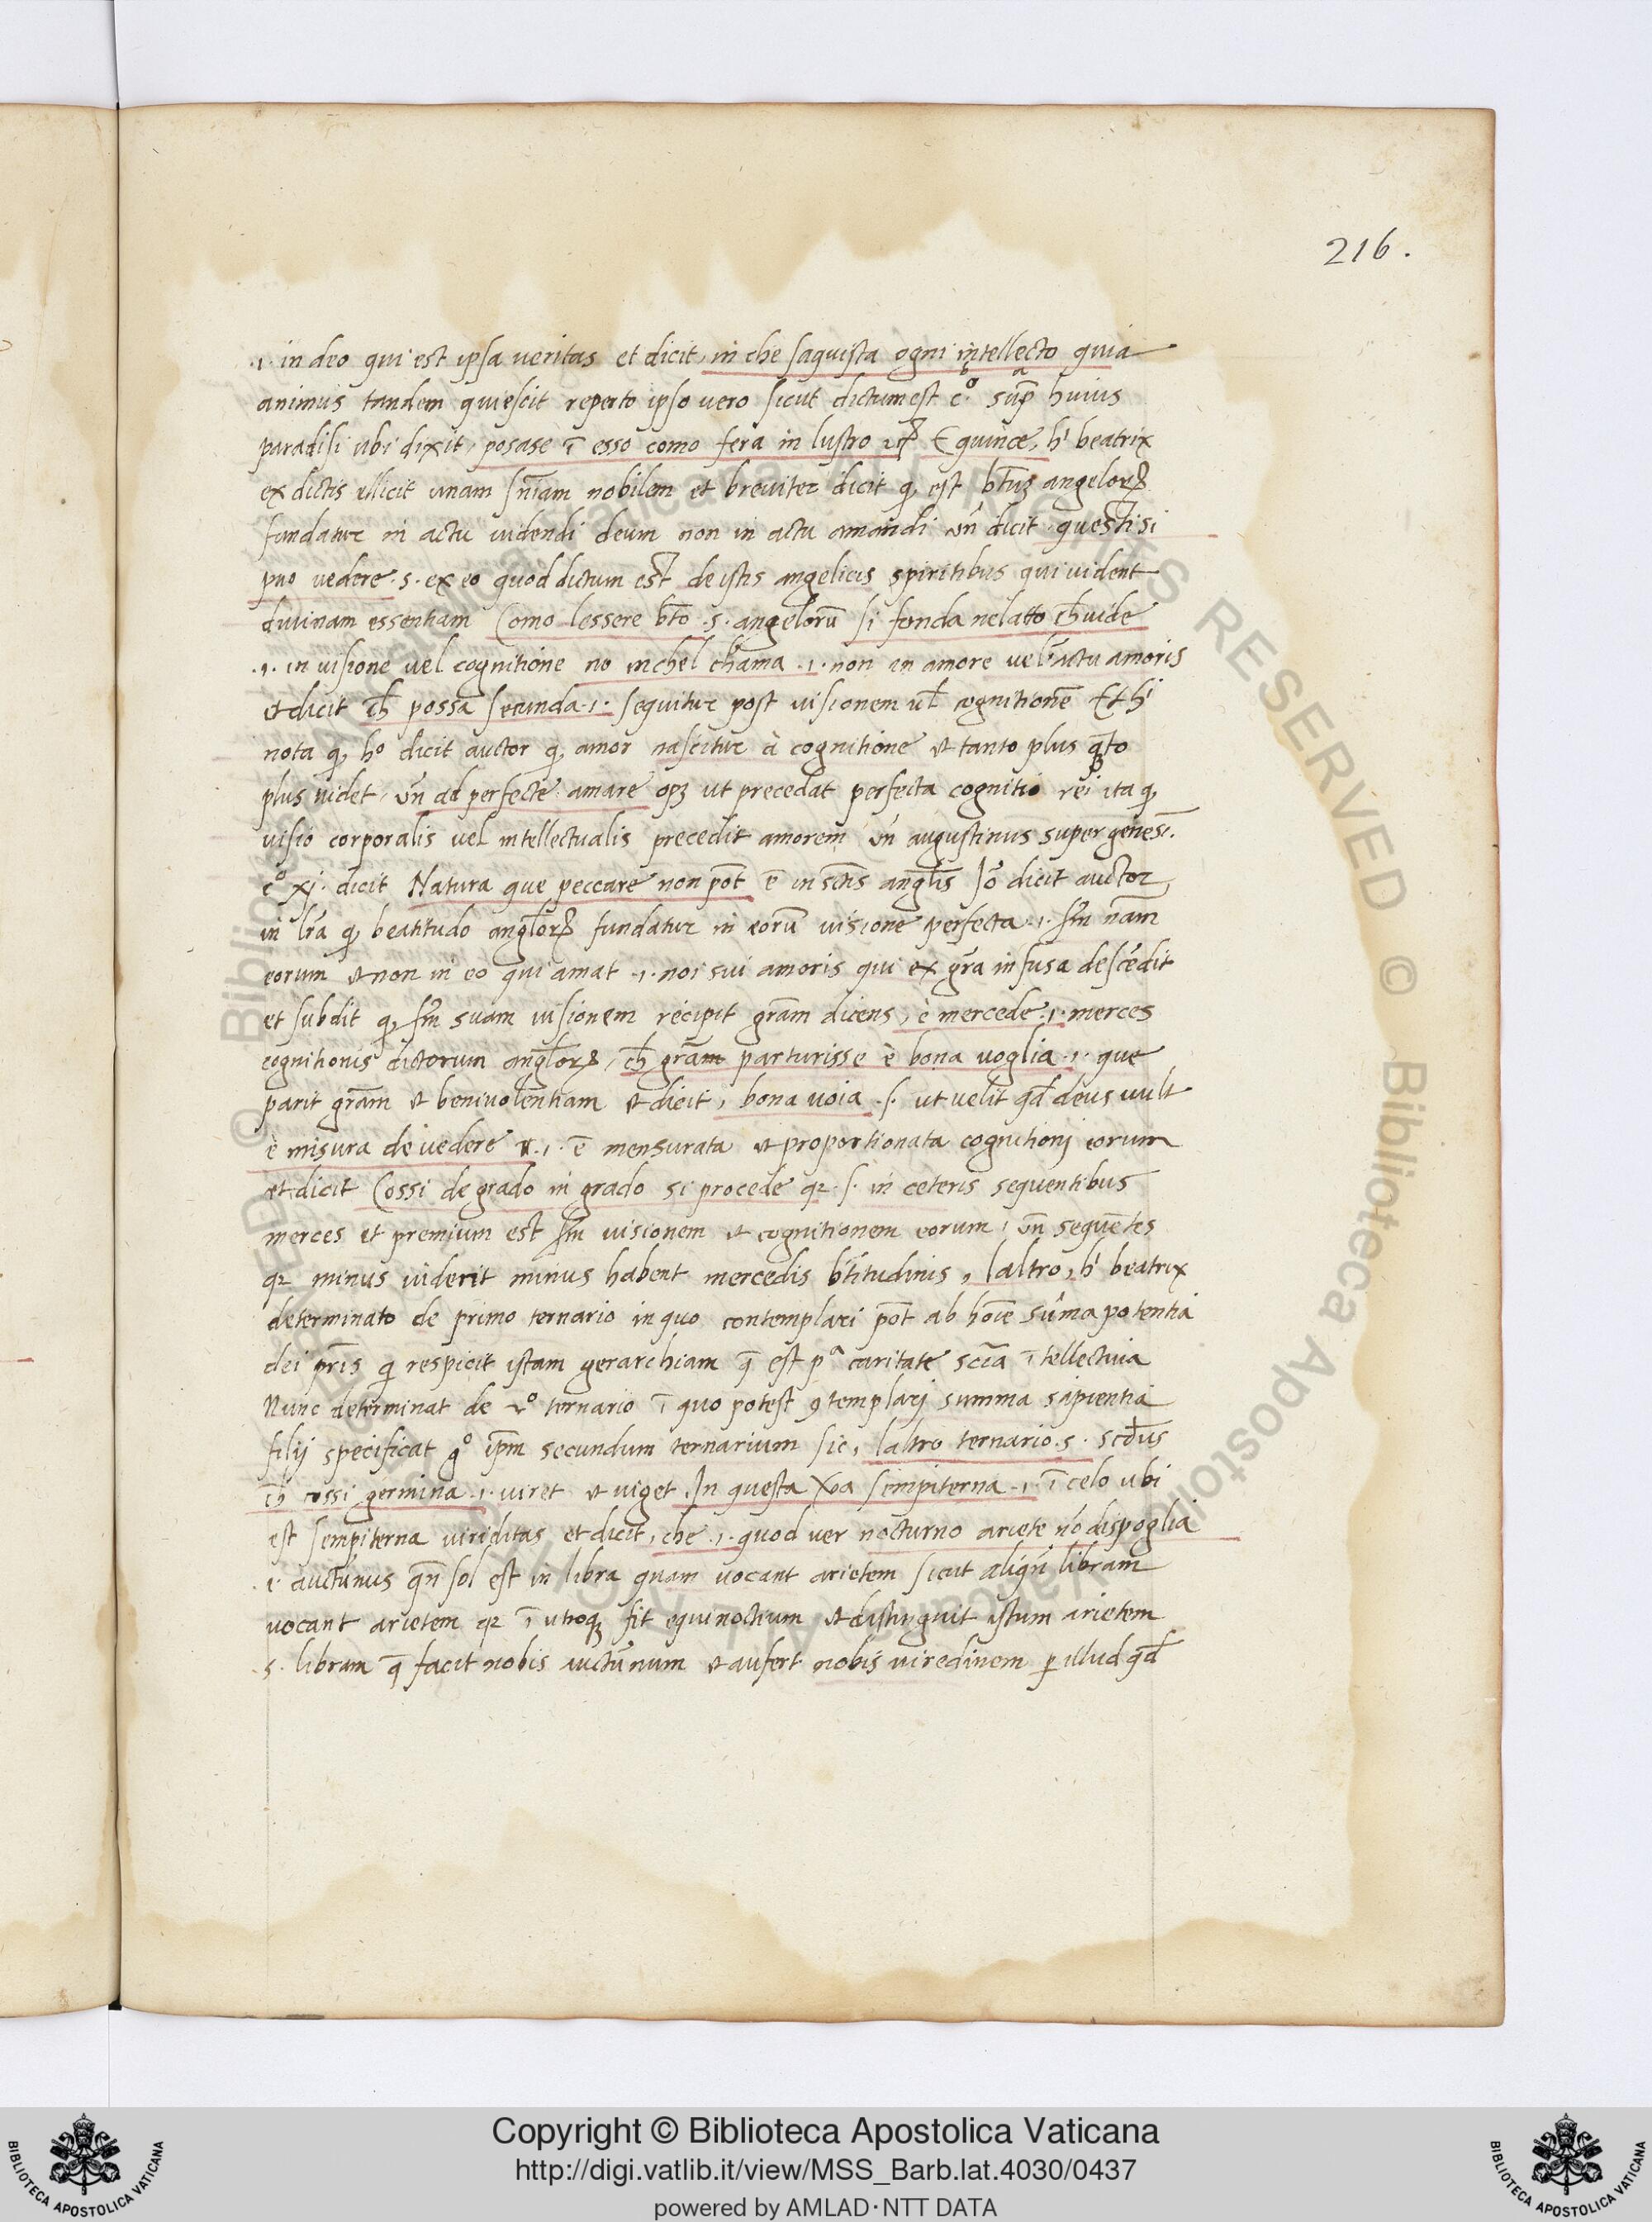 216.
.i. in deo qui est ipsa veritas et dicit, in che saquista ogni intellecto quia
animus tandem quiescit reperto ipso vero sicut dictum est c.º supª huius
paradisi ubi dixit, posase ī esso como fera in lustro Equince, hⁱ beatrix
ex dictis ellicit unam sn̄iam nobilem et breviter dicit q, est angeloꝝ
fundatur in actu videndi deum non in actu amandi un̄ dicit questi si
puo vedere .s. ex eo quod dictum est de istis angelicis spiritibus qui vident
divinam essentiam Como lessere bt̄o .s. angelorū si fonda nelatto ch̄ vide
.i. in visione vel cognitione no inchel chama .i. non in amore vel actu amoris
et dicit ch̄ possa secunda .i. sequitur post visionem vl̄ cognitionē Et hⁱ
nota q, hº dicit auctor q, amor nascitur à cognitione et tanto plus
plus videt, un̄ ad perfecte amare opꝫ ut precedat perfecta cognitio rei ita q,
visio corporalis vel intellectualis precedit amorem un̄ augustinus super genesi.
cº xj. dicit Natura que peccare non pōt ē in sc̄tis angl̄is Iō dicit auctor
in lr̄a q, beatitudo angl̄oꝝ fundatur in eorū visione perfecta .i. sm̄ nām
eorum et non in eo qui amat .i. noi sui amoris qui ex gr̄a infusa descēdit
et subdit q, sm̄ suam visionem recipit gr̄am dicens, è mercede .i. merces
cognitionis dictorum angl̄oꝝ, ch̄ gr̄am parturisse è bona voglia .i. que
parit gr̄am et benivolentiam et dicit, bona voia .s. ut velit qd̄ deus vult
è misura de vedere .i. ē mensurata et proportionata cognitionj eorum
et dicit Cossi de grado in grado si procede qꝛ .s. in ceteris sequentibus
merces et premium est sm̄ visionem et cognitionem eorum, un̄ sequētes
qꝛ minus viderit minus habent mercedis bt̄itudinis, laltro, hⁱ beatrix
determinato de primo ternario in quo contemplari pōt ab hōie sūma potentia
dei pr̄is q respicit istam gerarchiam q̄ est pª caritate scīa ītellectiva
Nunc determinat de 2º ternario ī quo potest ꝯtemplarj summa sapientia
filij specificat gº ip̄m secundum ternarium sic, laltro ternario .s. scd̄us
ch̄ cossi germina .i. viret et viget In questa sempiterna .i. ī celo ubi
est sempiterna viriditas et dicit, che .i. quod ver nocturno ariete nō dispoglia
.i. auctūnus qn̄ sol est in libra quam vocant arietem sicut aliqn̄ libram
vocant arietem qꝛ ī utroqꝫ fit equinoctium et distinguit istum arietem
.s. libram q̄ facit nobis auctūnum et aufert nobis viredinem p illud qd̄
© Biblioteca Apostolica Vaticana ALL RIGHTS RESERVED
Copyright © Biblioteca Apostolica Vaticana
http://digi.vatlib.it/view/MSS_Barb.lat.4030/0437
powered by AMLAD·NTT DATA
BIBLIOTECA APOSTOLICA VATICANA
BIBLIOTECA APOSTOLICA VATICANA